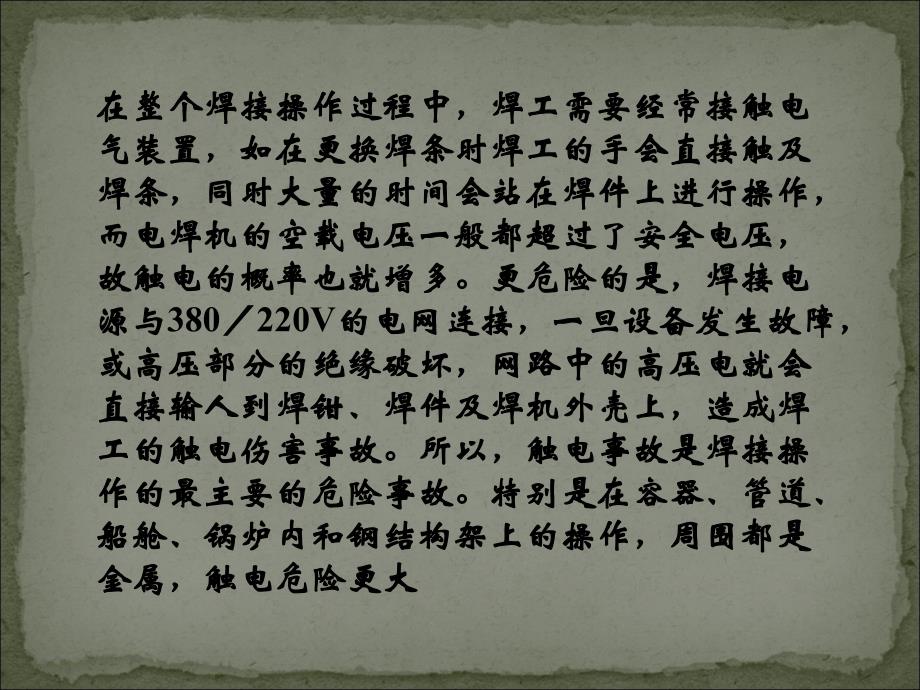 在整个焊接操作过程中，焊工需要经常接触电
气装置，如在更换焊条时焊工的手会直接触及
焊条，同时大量的时间会站在焊件上进行操作，
而电焊机的空载电压一般都超过了安全电压，
故触电的概率也就增多。更危险的是，焊接电
源与380／220V的电网连接，一旦设备发生故障，
或高压部分的绝缘破坏，网路中的高压电就会
直接输人到焊钳、焊件及焊机外壳上，造成焊
工的触电伤害事故。所以，触电事故是焊接操
作的最主要的危险事故。特别是在容器、管道、
船舱、锅炉内和钢结构架上的操作，周围都是
金属，触电危险更大